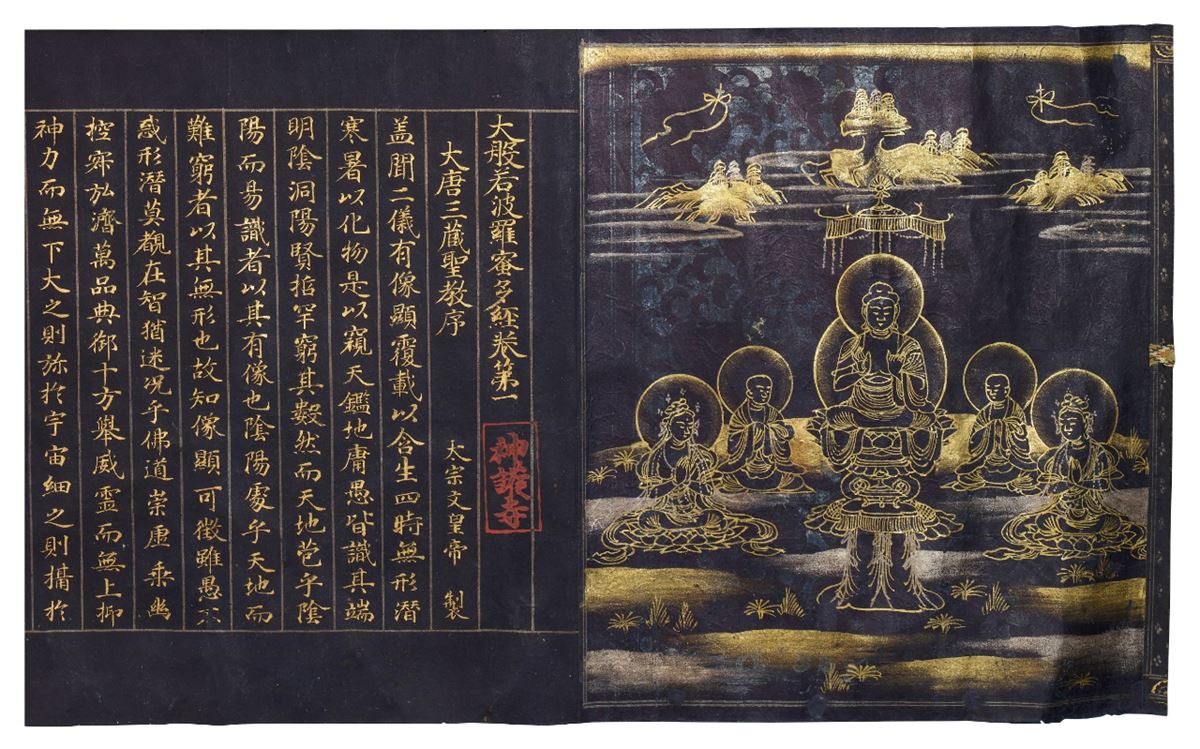 大般若波羅蜜多經卷第一
神護寺
大唐三藏聖教序 太宗文皇帝 製
盖聞二儀有像顯覆載以含生四時無形潜
寒暑以化物是以窺天鑑地庸愚皆識其端
明陰洞陽賢悊罕窮其數然而天地苞乎陰
陽而易識者以其有像也陰陽處乎天地而
難窮者以其無形也故知像顯可徵雖愚不
惑形潜莫覩在智猶迷况乎佛道崇虚乘幽
控寂弘濟萬品典御十方舉威靈而無上抑
神力而無下大之則弥於宇宙細之則攝於